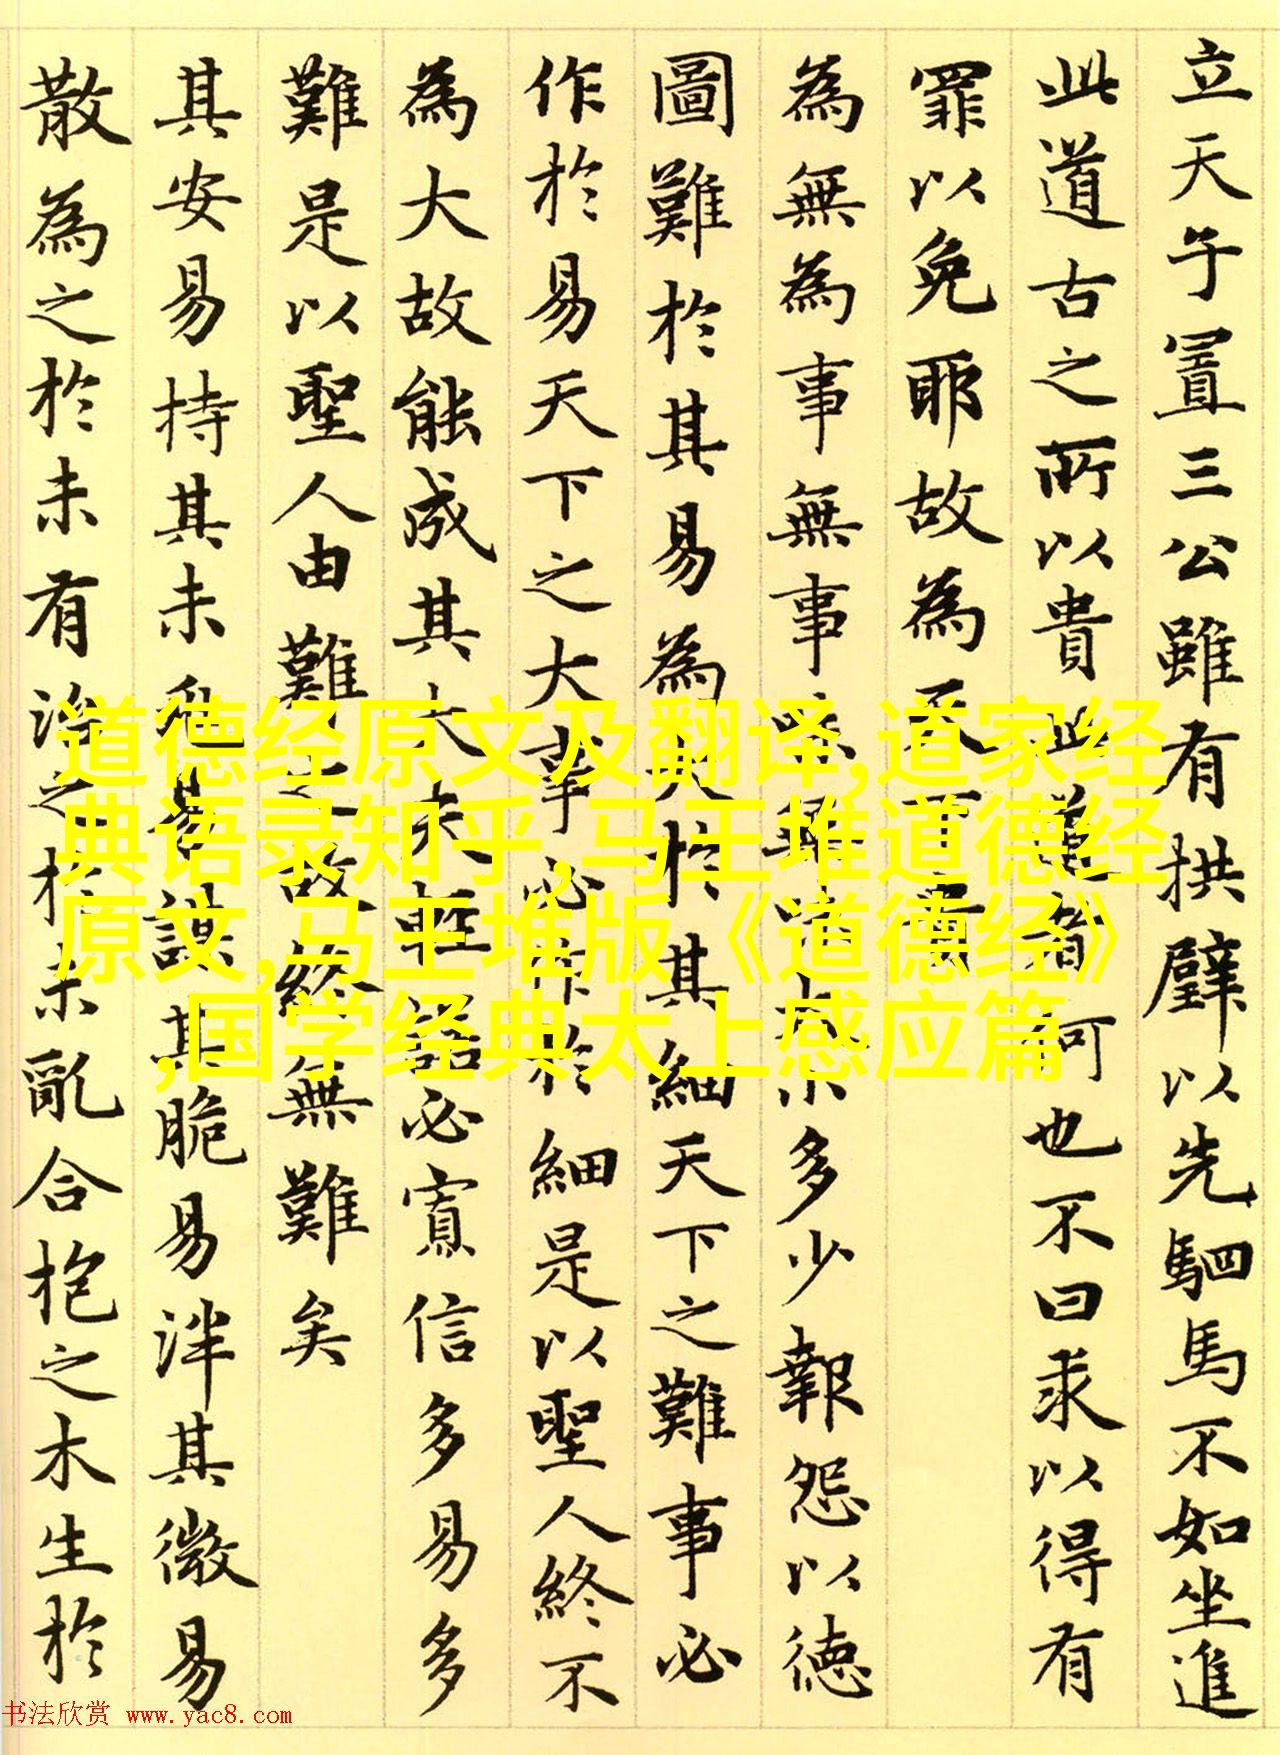 立天子置三公雖有拱璧以先駟馬不如坐進
此道古之所以貴此道者何也不曰求以得有
罪以免耶故為天下貴
為無為事無事味無味大小多少報怨以德
圖難於其易為大於其細天下之難事必
作於易天下之大事必作於細是以聖人終不
為大故能成其大夫輕諾必寡信多易多
難是以聖人由難之故終無難矣
其安易持其未兆易謀其脆易泮其微易
散為之於未有治之於未亂合抱之木生於
道德经原文及翻译,道家经
典语录知乎,马王堆道德经
原文,马王堆版《道德经》
,国学经典太上感应篇
书法欣赏 www.yac8.com